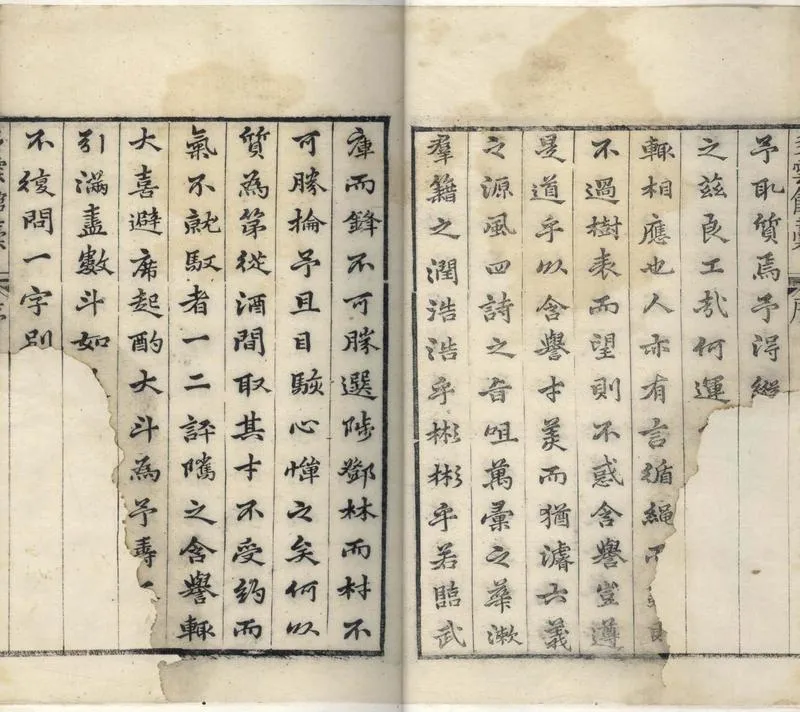 予取質焉予淂
之茲良工哉何運
輙相應也人亦有言循繩
不過樹表而望則不惑含譽豈遵
是道乎以含譽才羙而猶濬六義
之源風四詩之旨咀萬彙之華漱
羣籍之潤浩浩乎彬彬乎若臨武
庫而鋒不可勝選陟鄧林而材不
可勝掄予且目駭心憚之矣何以
質為第從酒間取其才不受約而
氣不就馭者一二評隲之含譽輙
大喜避席起酌大斗為予壽
引滿盡數斗如
不復問一字别